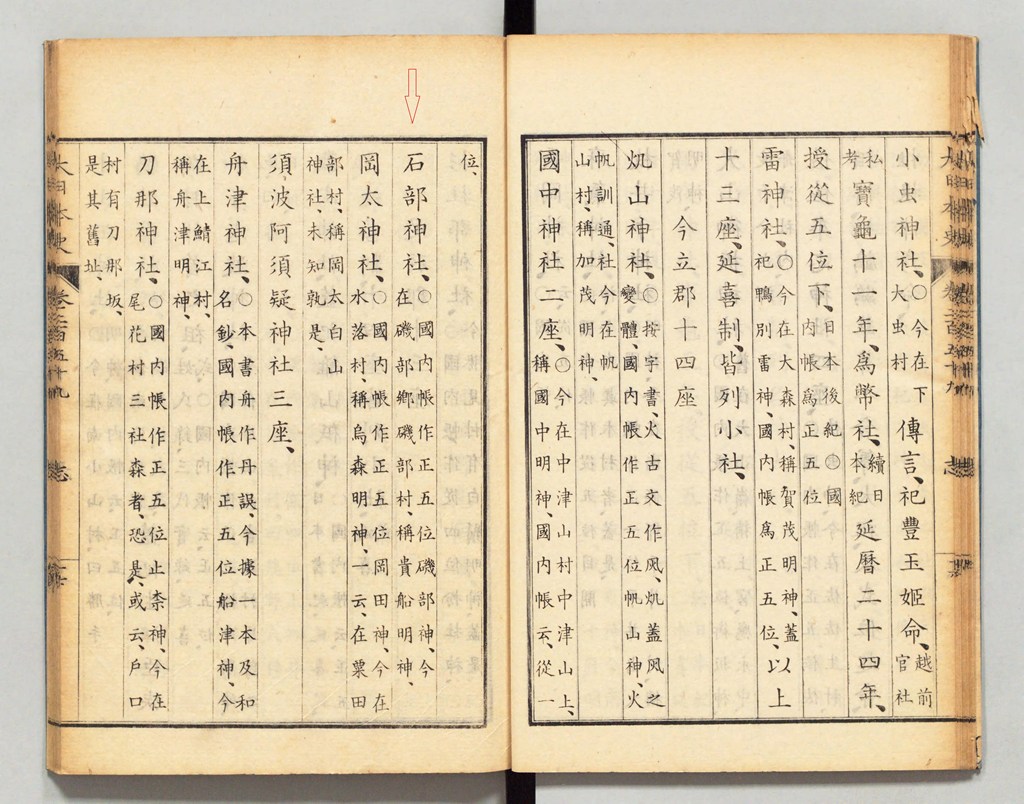 小虫神社、〇今在下大虫村傳言、祀豐玉姬命、越前官社
私考寶龜十一年、爲幣社、續日本紀延曆二十四年、
授從五位下、日本後紀〇國内帳爲正五位
雷神社、〇今在大森村、稱賀茂明神、蓋祀鴨別雷神、國内帳爲正五位、以上
十三座、延喜制、皆列小社、
今立郡十四座
山神社、〇按字書、火古文作蓋風之變體、國内帳作正五位帆山神、火
帆訓通、今社在帆山村、稱加茂明神、
國中神社二座、〇今在中津山村中津山上、稱國中明神、國内帳云、從一
位、
石部神社、〇國内帳作正五位磯部神、今在磯部鄉磯部村、稱貴船明神、
岡太神社、〇國内帳作正五位岡田神、今在水落村、稱烏森明神、云、在粟田
部村、稱岡太白山神社、未知孰是
須波阿須疑神社三座、
舟津神社、〇本書舟作丹誤、今據一本及和名鈔、國内帳作正五位船津神、今
在上鯖江村、稱舟津明神、
刀那神社、〇國内帳作正五位止柰神、今在尾花村三社森者、恐是、或云、戶口
村有刀那坂、是其舊址
大日本史
卷二百五十九
志